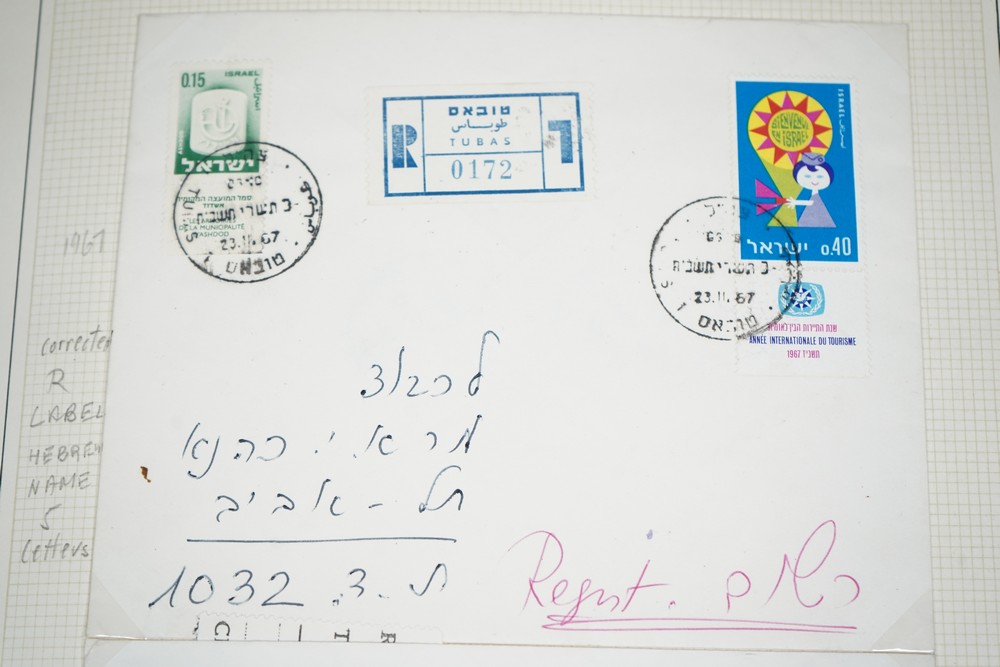 0.15
ISRAEL
اسرائيل
ישראל
סמל המועצה המקומית
אשדוד
DE LA MUNICIPALITÉ
D'ASHDOD
TUBAS
-3 תשרי תשכ"ח
23.11.67
טובאס
R
טובאס
طوباس
TUBAS
0172
ISRAEL
BIENVENUE
EN ISRAEL
ישראל 0.40
-3 תשרי תשכ"ח
23.11.67
טובאס
שנת התיירות הבינלאומית
ANNÉE INTERNATIONALE DU TOURISME
1967 תשכ"ז
1967
corrected
R
LABEL
HEBREW
NAME
5
letters
לכבוד
מר א. י. כהנא
תל - אביב
ת. ד. 1032
Regist. רשום
R I